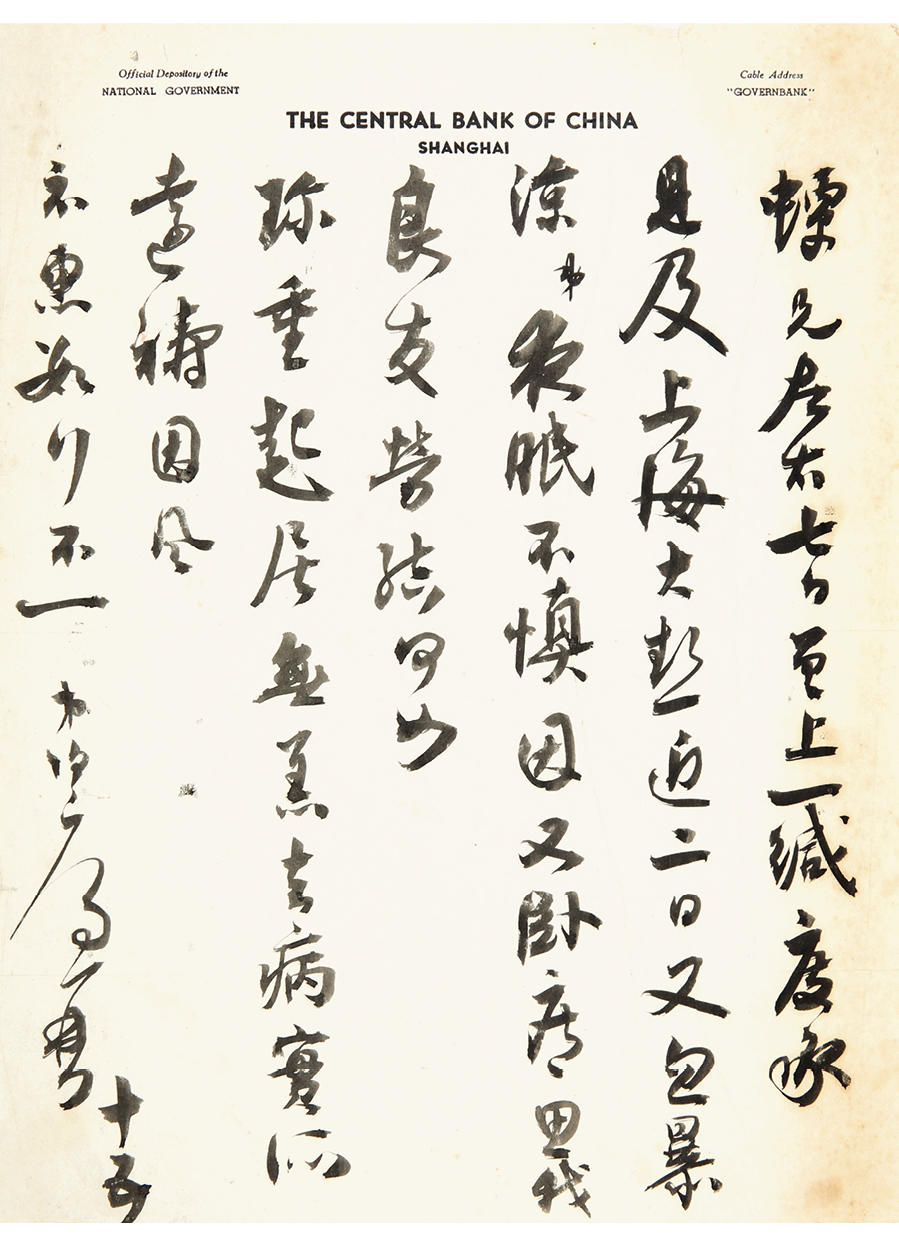 Official Depository of the
NATIONAL GOVERNMENT
Cable Address
"GOVERNBANK"
THE CENTRAL BANK OF CHINA
SHANGHAI
蟫兄左右七日曾上一緘度承
見及上海大熱近二日又忽暴
涼弟夜眠不慎因又卧病思我
良友勞結何如
珍重起居無恙去病實所
遠禱因風
示惠數行不一 弟伯鷹
十五